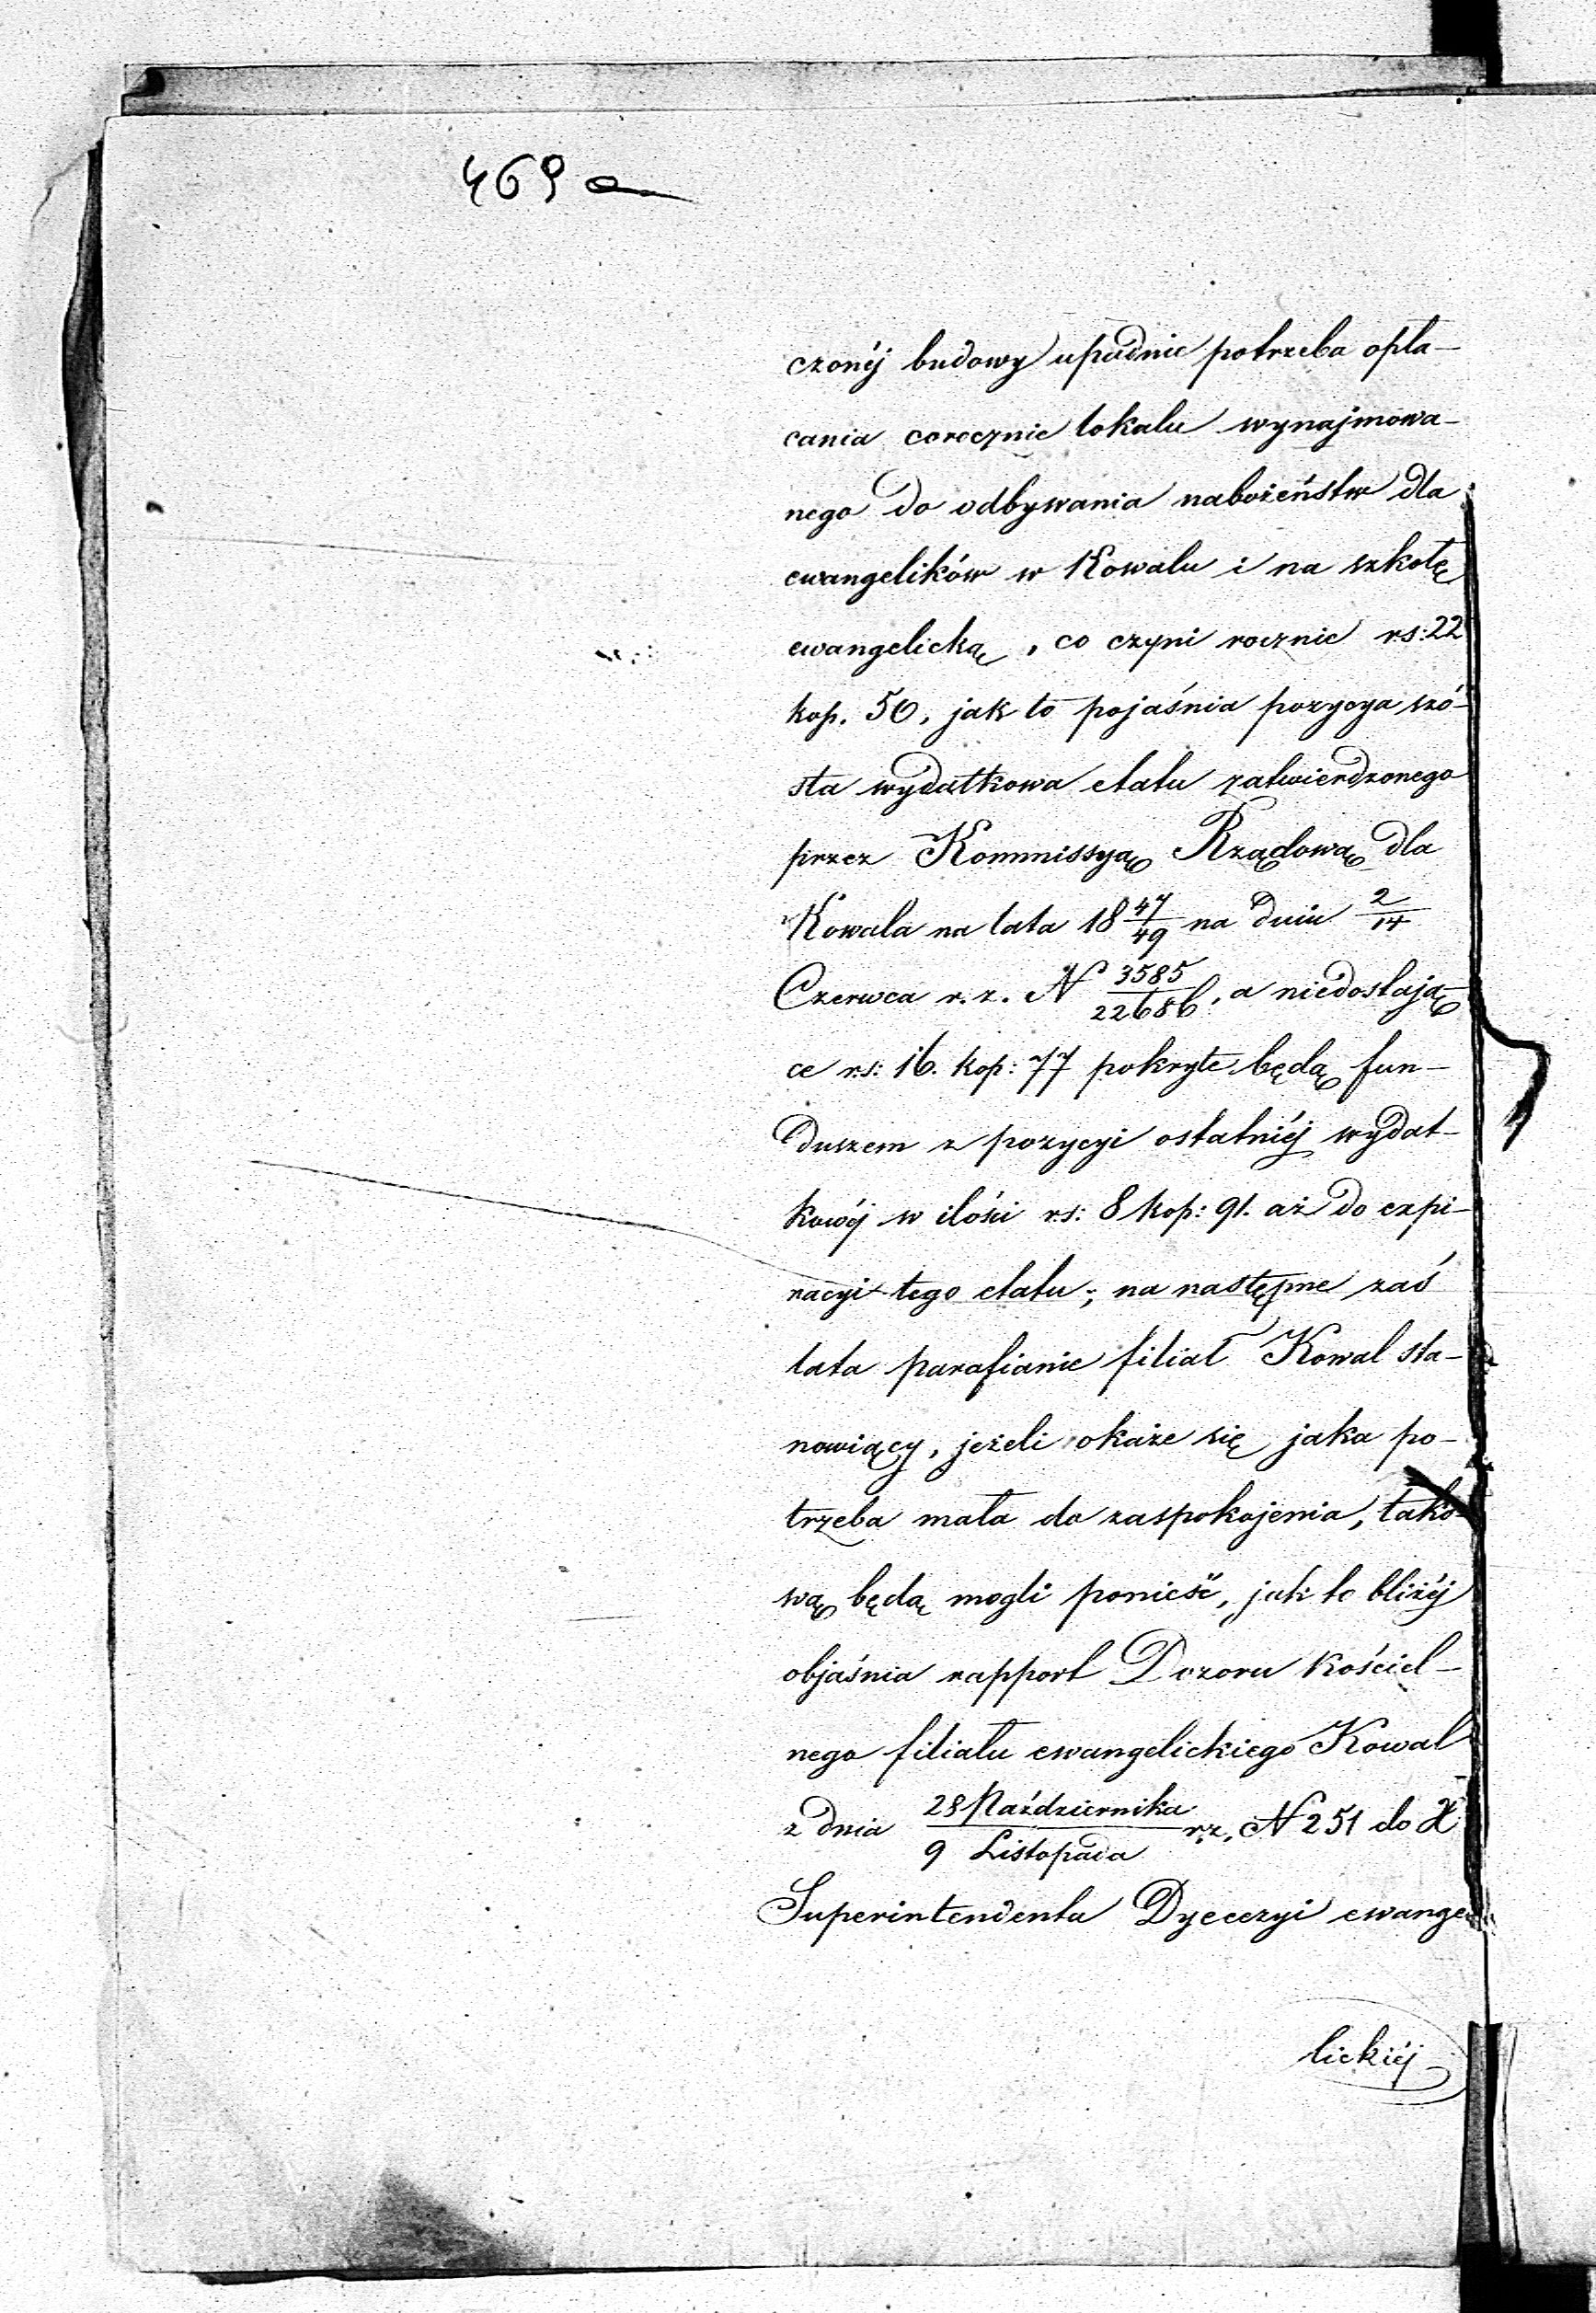 469 a
czonéj budowy upadnie potrzeba opła-
cania corocznie lokalu wynajmowa-
nego do odbywania nabożeństw dla
ewangelików w Kowalu i na szkołę
ewangelicką, co czyni rocznie rs: 22
kop. 50, jak to pojaśnia pozycya szó-
sta wydatkowa etatu zatwierdzonego
przez Kommissyą Rządową dla
Kowala na lata 18 47/49 na dniu 2/14
Czerwca r. z. N 3585/22686, a niedostają-
ce rs: 16. kop: 77 pokryte będą fun-
duszem z pozycyi ostatniéj wydat-
kowéj w ilości rs: 8 kop: 91. aż do expi-
racyi tego etatu; na następne zaś
lata parafianie filiał Kowal sta-
nowiący, jeżeli okaże się jaka po-
trzeba mała do zaspokojenia, tako-
wą będą mogli ponieść, jak to bliżéj
objaśnia rapport Dozoru Kościel-
nego filiału ewangelickiego Kowal
z dnia 28 Października/9 Listopada r. z. N 251 do X
Superintendenta Dyecezyi ewange
lickiéj